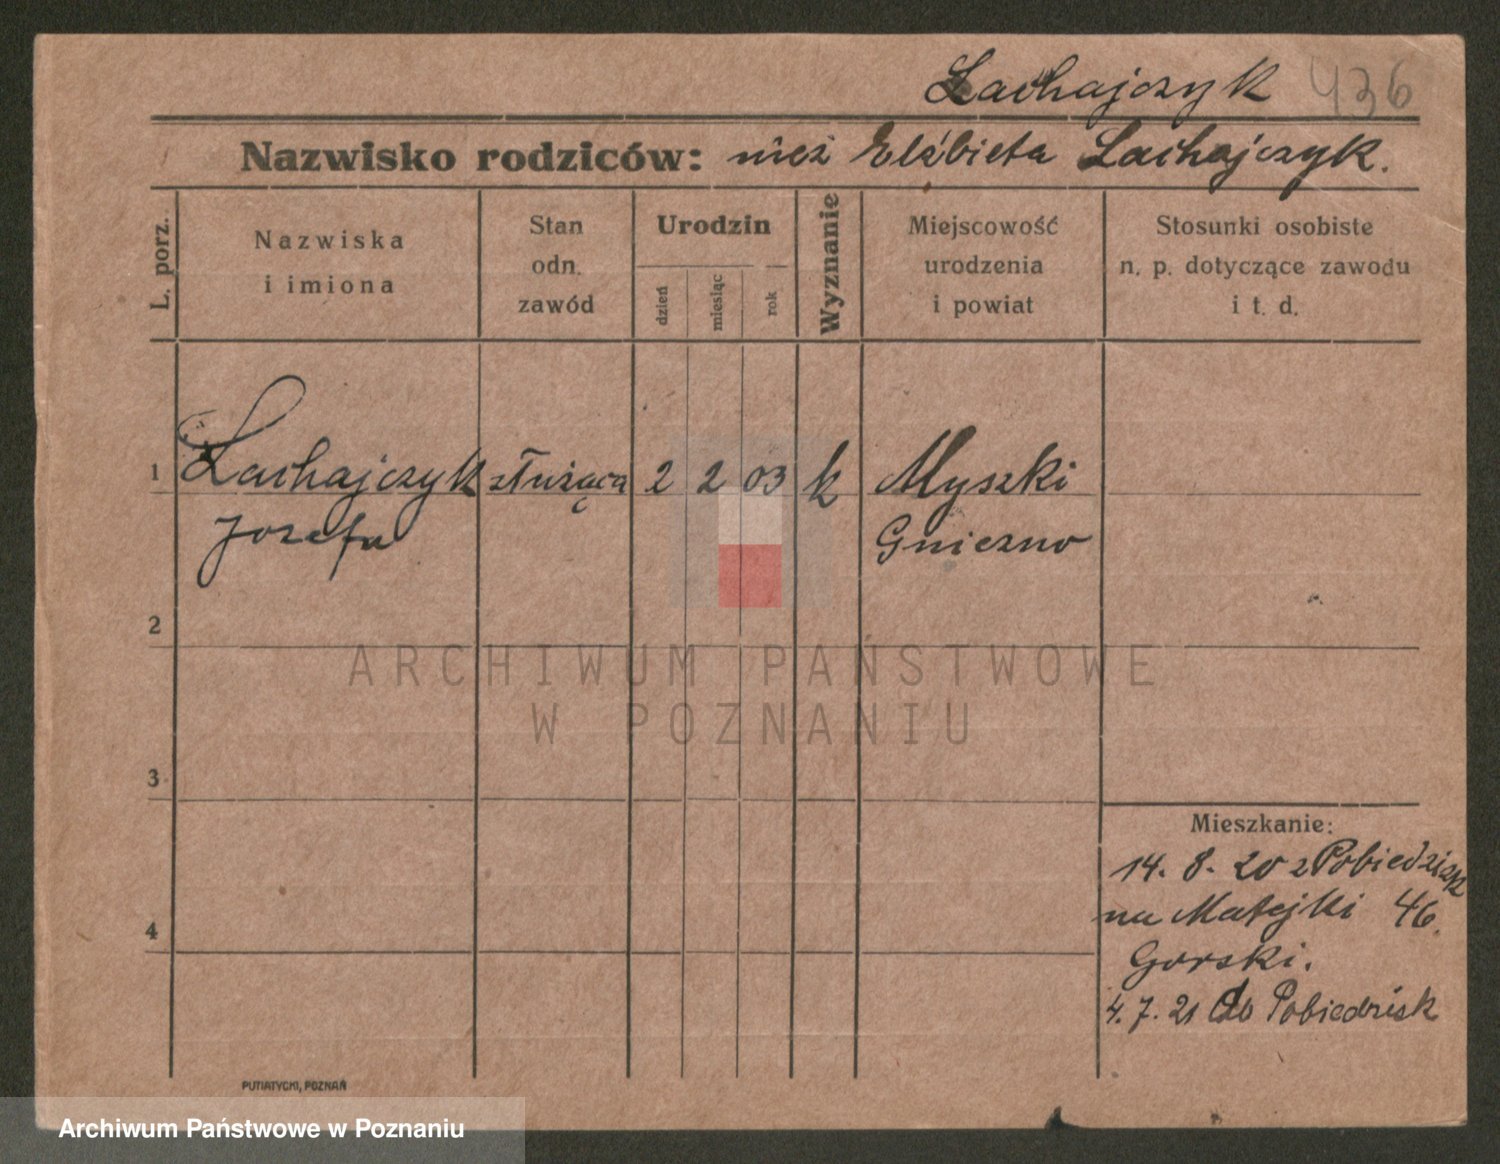 Lachajczyk 436
Nazwisko rodziców: nież Elżbieta Lachajczyk.
L. porz.
Nazwiska
i imiona
Stan
odn.
zawód
Urodzin
dzień
miesiąc
rok
Wyznanie
Miejscowość
urodzenia
i powiat
Stosunki osobiste
n. p. dotyczące zawodu
i t. d.
1 Lachajczyk służąca 2 2 03 k Myszki
Jozefa Gniezno
2
3
4
Mieszkanie:
14. 8. 20 z Pobiedzisk
na Matejki 46.
Gorski.
4. 7. 21 do Pobiedzisk
PUTIATYCKI, POZNAŃ
ARCHIWUM PAŃSTWOWE
W POZNANIU
Archiwum Państwowe w Poznaniu